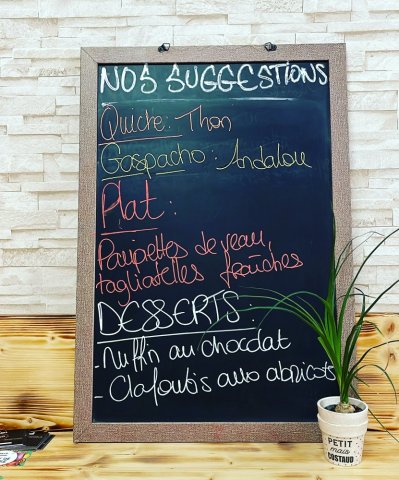 NOS SUGGESTIONS
Quiche: Thon
Gaspacho: Andalou
Plat:
Paupiettes de veau,
tagliatelles fraîches
DESSERTS:
- Muffin au chocolat
- Clafoutis aux abricots
PETIT
mais
COSTAUD